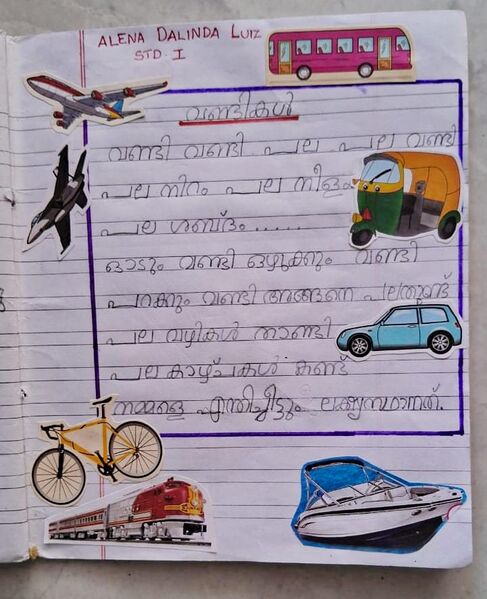 ALENA DALINDA LUIZ
STD. I
വണ്ടികൾ
വണ്ടി വണ്ടി പല പല വണ്ടി
പല നിറം പല നീളം
പല ശബ്ദം ......
ഓടും വണ്ടി ഒഴുകും വണ്ടി
പറക്കും വണ്ടി അങ്ങനെ പലതുണ്ട്
പല വഴികൾ താണ്ടി
പല കാഴ്ചകൾ കണ്ട്
നമ്മളെ എത്തിച്ചീടും ലക്ഷ്യസ്ഥാനത്ത്.